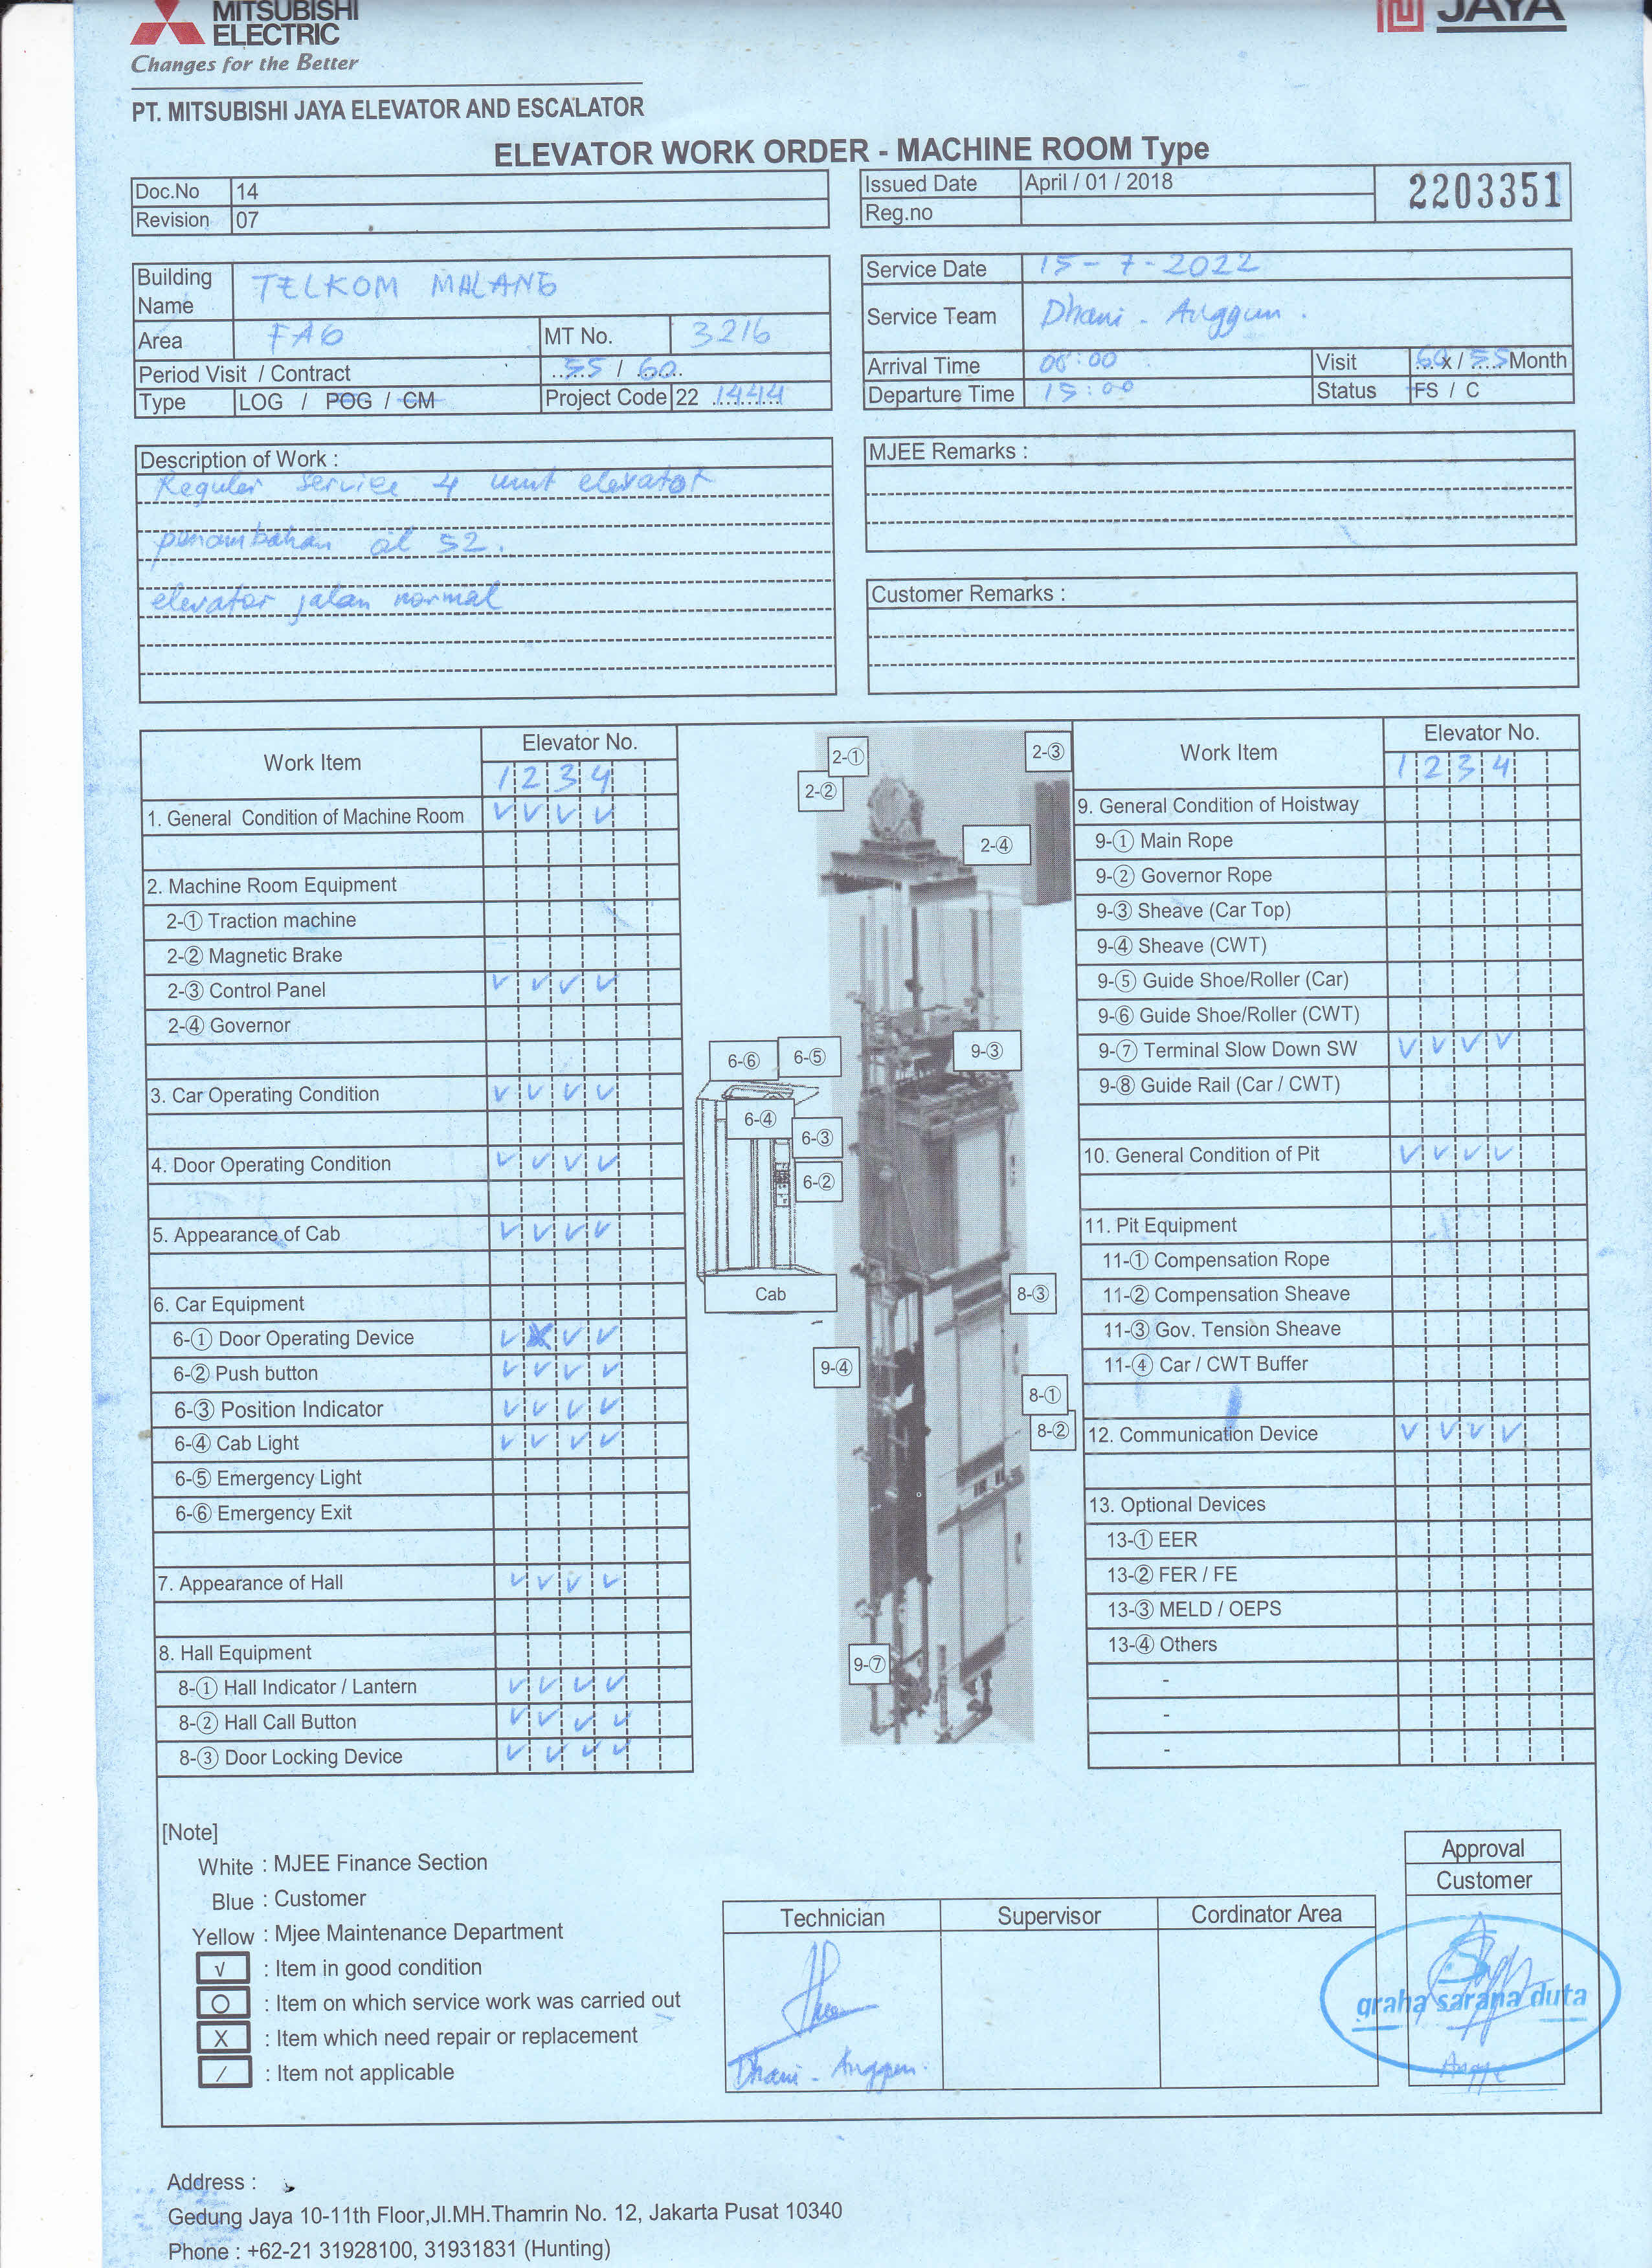 MITSUBISHI
ELECTRIC
Changes for the Better
JAYA
PT. MITSUBISHI JAYA ELEVATOR AND ESCALATOR
ELEVATOR WORK ORDER - MACHINE ROOM Type
Doc.No 14
Revision 07
Issued Date April / 01 / 2018
Reg.no
2203351
Building Name TELKOM MALANG
Area FA6 MT No. 3216
Period Visit / Contract 55 / 60
Type LOG / POG / CM Project Code 22 1444
Service Date 15-7-2022
Service Team Dhani - Anggun.
Arrival Time 08:00 Visit 60 x / 55 Month
Departure Time 15:00 Status FS / C
Description of Work :
Reguler Service 4 unit elevator
penambahan ol 52.
elevator jalan normal
MJEE Remarks :
Customer Remarks :
Work Item Elevator No.
1 2 3 4
1. General Condition of Machine Room √ √ √ √
2. Machine Room Equipment
2-① Traction machine
2-② Magnetic Brake
2-③ Control Panel √ √ √ √
2-④ Governor
3. Car Operating Condition √ √ √ √
4. Door Operating Condition √ √ √ √
5. Appearance of Cab √ √ √ √
6. Car Equipment
6-① Door Operating Device √ √ √
6-② Push button √ √ √ √
6-③ Position Indicator √ √ √ √
6-④ Cab Light √ √ √ √
6-⑤ Emergency Light
6-⑥ Emergency Exit
7. Appearance of Hall √ √ √ √
8. Hall Equipment
8-① Hall Indicator / Lantern √ √ √ √
8-② Hall Call Button √ √ √ √
8-③ Door Locking Device √ √ √ √
2-①
2-②
2-③
2-④
6-⑥
6-⑤
9-③
6-④
6-③
6-②
Cab
8-③
9-④
8-①
8-②
9-⑦
Work Item Elevator No.
1 2 3 4
9. General Condition of Hoistway
9-① Main Rope
9-② Governor Rope
9-③ Sheave (Car Top)
9-④ Sheave (CWT)
9-⑤ Guide Shoe/Roller (Car)
9-⑥ Guide Shoe/Roller (CWT)
9-⑦ Terminal Slow Down SW √ √ √ √
9-⑧ Guide Rail (Car / CWT)
10. General Condition of Pit √ √ √ √
11. Pit Equipment
11-① Compensation Rope
11-② Compensation Sheave
11-③ Gov. Tension Sheave
11-④ Car / CWT Buffer
12. Communication Device √ √ √ √
13. Optional Devices
13-① EER
13-② FER / FE
13-③ MELD / OEPS
13-④ Others
-
-
-
[Note]
White : MJEE Finance Section
Blue : Customer
Yellow : Mjee Maintenance Department
√ : Item in good condition
O : Item on which service work was carried out
X : Item which need repair or replacement
/ : Item not applicable
Technician Supervisor Cordinator Area
Dhani - Anggun.
Approval
Customer
graha sarana duta
Address :
Gedung Jaya 10-11th Floor,Jl.MH.Thamrin No. 12, Jakarta Pusat 10340
Phone : +62-21 31928100, 31931831 (Hunting)